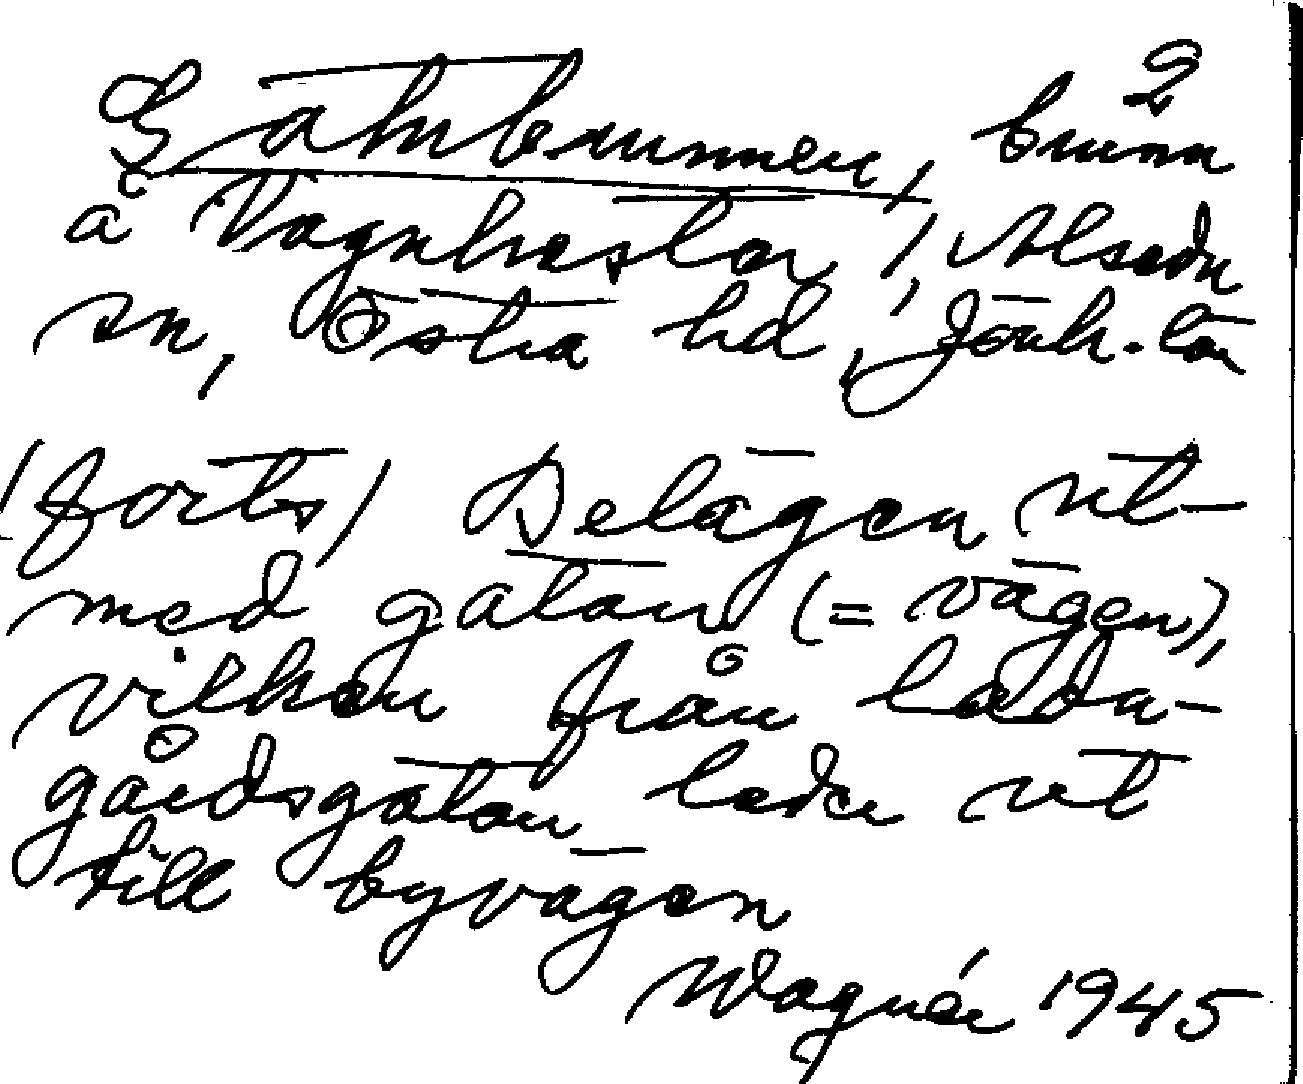 2
Gatubrunnen, brunn
å Vagnhester 1, Alseda
sn, Östra hd, Jönk. län
(forts) Belägen ut-
med gatan (= vägen),
vilken från ladu-
gårdsgatan leder ut
till byvägen
Wagnér 1945